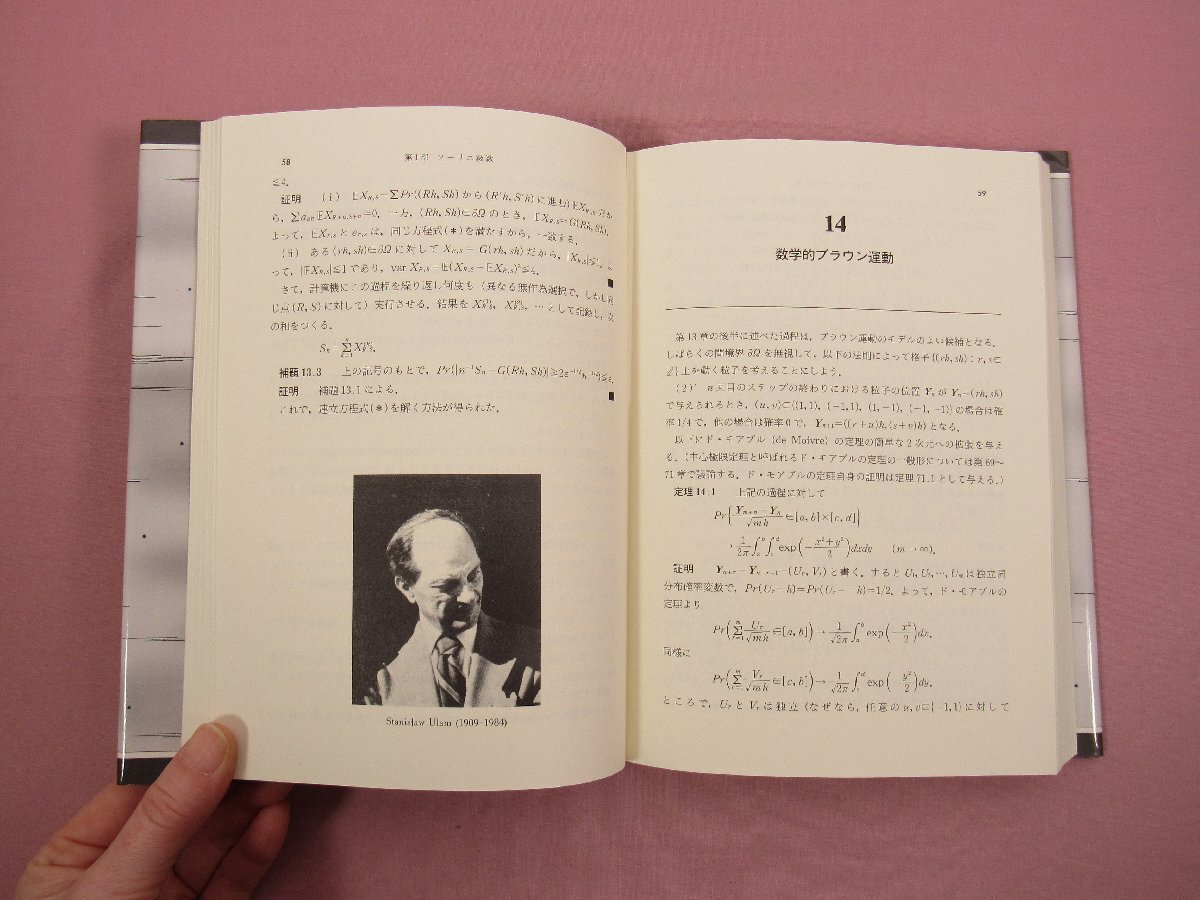 58
第1部 フーリエ級数
≦4.
証明 (i) 𝔼X_{R,S}=ΣPr((Rh, Sh)から(R'h, S'h)に進む)
ら, 一方, (Rh, Sh)∈∂Ωのとき,
よって, 同じ方程式(*)を満たすから, 一致する.
(ii) ある(rh, sh)∈∂Ωに対して X_{R,S}=G(rh, sh)だから,
って, |𝔼X_{R,S}|≦1であり, var X_{R,S}=𝔼(X_{R,S}−𝔼X_{R,S})²≦4. ■
さて, 計算機にこの過程を繰り返し何度も(異なる無作為選択で, しかし同
じ点(R, S)に対して)実行させる. 結果を … として記録し, 次
の和をつくる.
補題13.3 上の記号のもとで,
証明 補題13.1による. ■
これで, 連立方程式(*)を解く方法が得られた.
Stanisław Ulam (1909–1984)
59
14
数学的ブラウン運動
第13章の後半に述べた過程は, ブラウン運動のモデルのよい候補となる.
しばらくの間境界∂Ωを無視して, 以下の法則によって格子{(rh, sh) : r, s∈
ℤ}上を動く粒子を考えることにしよう.
(2)' n回目のステップの終わりにおける粒子の位置 Yₙ が Yₙ=(rh, sh)
で与えられるとき, (u, v)∈{(1, 1), (−1, 1), (1, −1), (−1, −1)}の場合は確
率1/4で, 他の場合は確率0で, Yₙ₊₁=((r+u)h, (s+v)h)となる.
以下にド・モアブル (de Moivre) の定理の簡単な2次元への拡張を与え
る. (中心極限定理と呼ばれるド・モアブルの定理の一般形については第69〜
71章で議論する. ド・モアブルの定理自身の証明は定理71.1として与える.)
定理14.1 上記の過程に対して
Pr{(Yₘ₊ₙ−Yₙ)/(√m h)∈[a, b]×[c, d]}
→ 1/2π ∫ₐᵇ∫_c^d exp(−(x²+y²)/2)dxdy (m→∞).
証明 Yₙ₊ᵣ−Yₙ₊ᵣ₋₁=(Uᵣ, Vᵣ)と書く. すると U₁, U₂, …, Uₘは独立同
分布確率変数で, Pr(Uᵣ=h)=Pr(Uᵣ=−h)=1/2. よって, ド・モアブルの
定理より
Pr(Σ_{r=1}^m Uᵣ/(√m h)∈[a, b]) → 1/√2π ∫ₐᵇ exp(−x²/2)dx.
同様に
Pr(Σ_{r=1}^m Vᵣ/(√m h)∈[c, b]) → 1/√2π ∫_c^d exp(−y²/2)dy.
ところで, UᵣとVᵣは独立(なぜなら, 任意のu, v∈{−1, 1}に対して